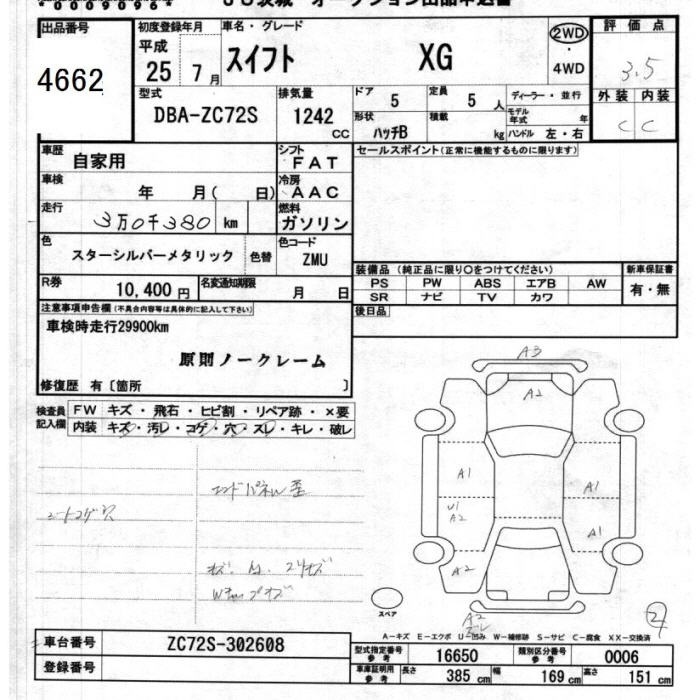 オークション出品申込書
出品番号 初度登録年月 車名・グレード 評価点
4662 平成 25年 7月 スイフト XG 2WD・4WD 3.5
型式 排気量 ドア 定員 ディーラー・並行 外装 内装
DBA-ZC72S 1242 CC 5 5人 モデル年式 年 C C
形状 積載
ハッチB kg ハンドル 左・右
車歴 自家用 シフト FAT セールスポイント(正常に機能するものに限ります)
車検 年 月( 日) 冷房 AAC
走行 3万0千380 km 燃料 ガソリン
色 色コード
スターシルバーメタリック 色替 ZMU
装備品(純正品に限り○をつけてください) 新車保証書
R券 10,400円 名変通知期限 月 日 PS PW ABS エアB AW 有・無
SR ナビ TV カワ
注意事項申告欄(不具合内容等は具体的に記入して下さい) 後日品
車検時走行29900km
原則ノークレーム
修復歴 有〔箇所 〕
検査員記入欄 FW キズ・飛石・ヒビ割・リペア跡・×要
内装 キズ・汚レ・コゲ・穴・スレ・キレ・破レ
A3
A2
A1 A1
U1
A2 A1
A2
エンドパネル歪
シートコゲ穴
スペア
A2
②
A-キズ E-エクボ U-凹み W-補修跡 S-サビ C-腐食 XX-交換済
車台番号 ZC72S-302608 型式指定番号 参考 16650 類別区分番号 参考 0006
登録番号 車庫証明用 参考 長さ 385 cm 幅 169 cm 高さ 151 cm